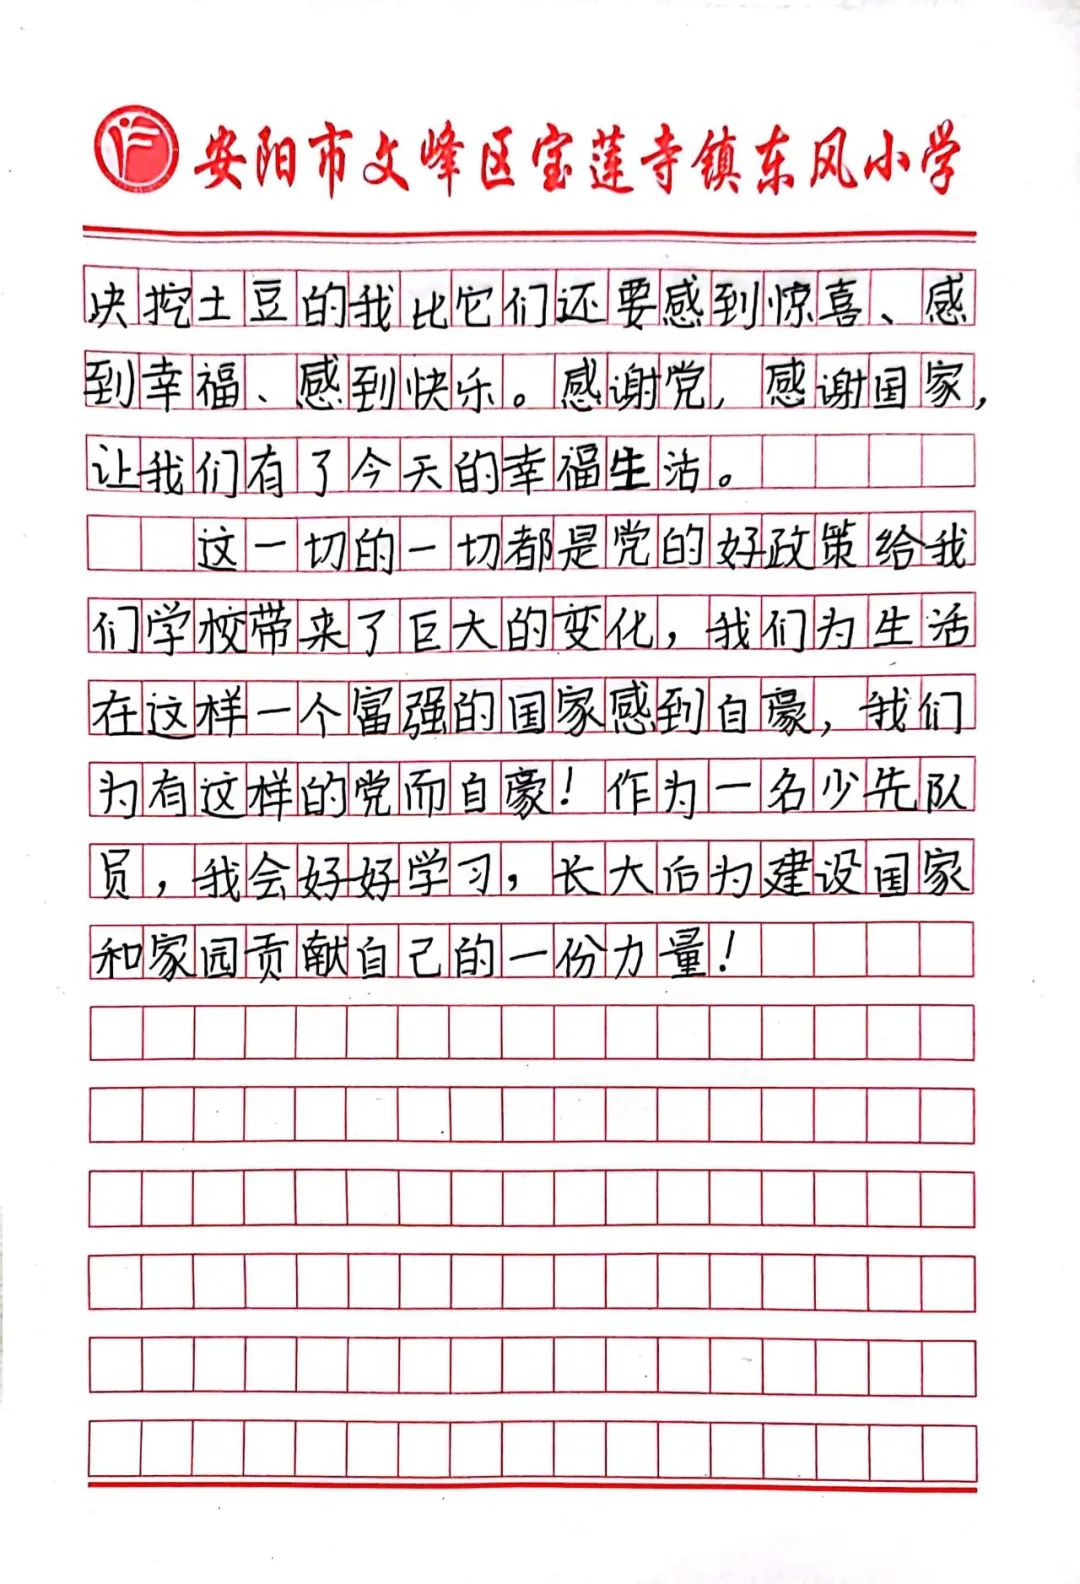 安阳市文峰区宝莲寺镇东风小学
块挖土豆的我比它们还要感到惊喜、感
到幸福、感到快乐。感谢党,感谢国家,
让我们有了今天的幸福生活。
这一切的一切都是党的好政策给我
们学校带来了巨大的变化,我们为生活
在这样一个富强的国家感到自豪,我们
为有这样的党而自豪!作为一名少先队
员,我会好好学习,长大后为建设国家
和家园贡献自己的一份力量!